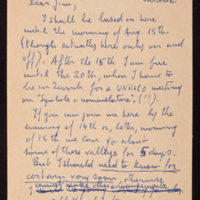 Dear Jim,
I shall be based on here
until the morning of Aug 15th.
(though actually here only on and
off). After the 15th I am free
until the 20th, when I have to
be in Zurich for a UNESCO meeting
on "Symbols + nomenclature", (!!).
If you can join me here by the
evening of 14th or, better, morning
of 15th we can go about
some of these valleys for 5 days.
But I should need to know for
certain very soon, otherwise